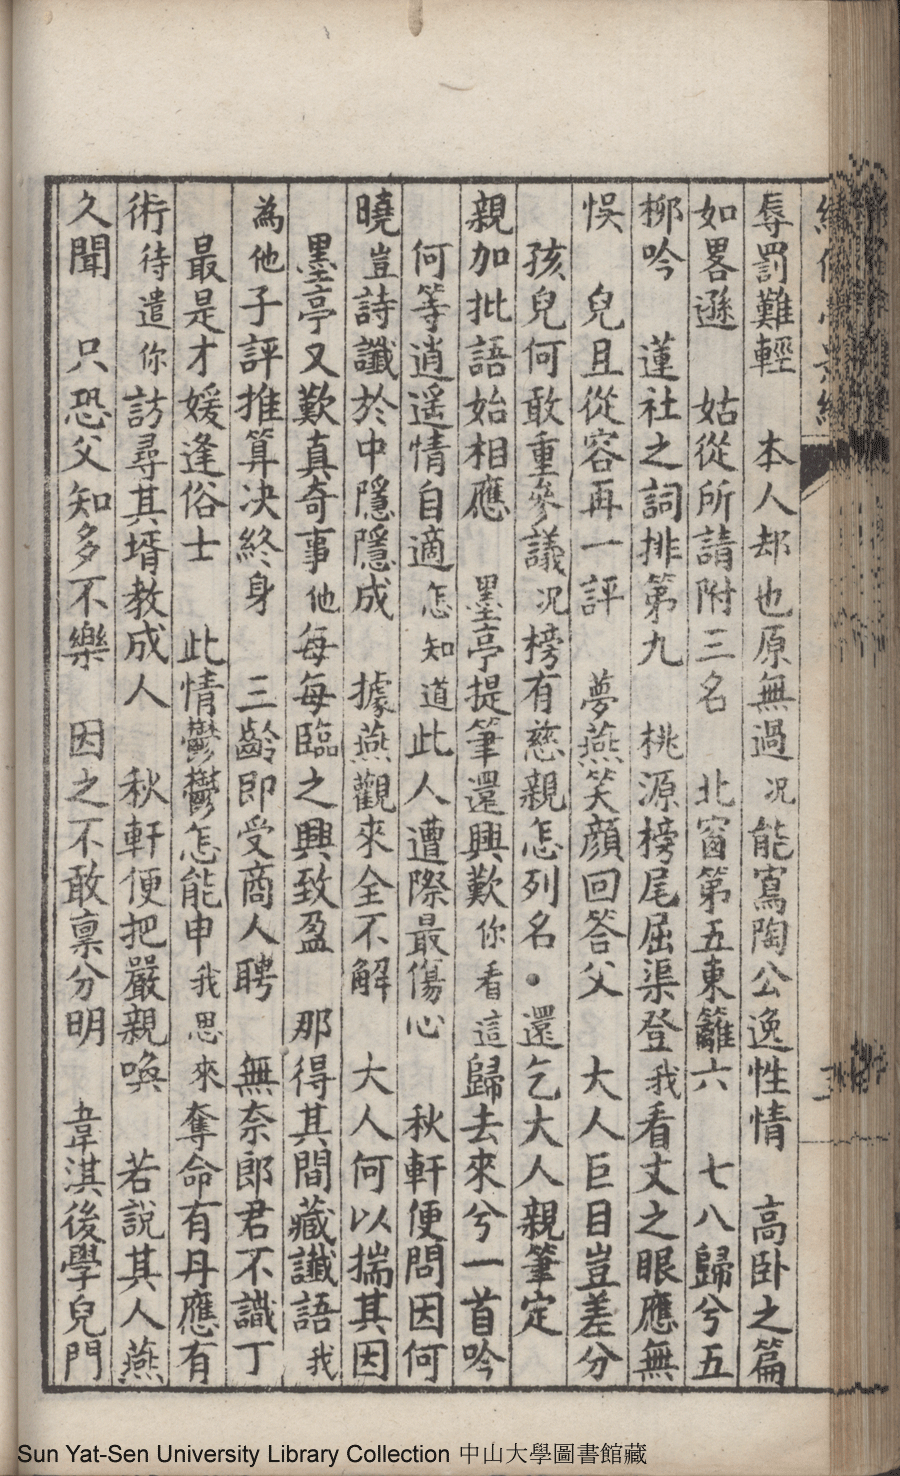 辱罰難輕　本人却也原無過況能寫陶公逸性情　高卧之篇
如畧遜　姑從所請附三名　北窗第五東籬六　七八歸兮五
柳吟　蓮社之詞排第九　桃源榜尾屈渠登我看丈之眼應無
悮　兒且從容再一評　夢燕笑顏回答父　大人巨目豈差分
孩兒何敢重參議况榜有慈親怎列名・還乞大人親筆定
親加批語始相應　墨亭提筆還興歎你看這歸去來兮一首吟
何等逍遥情自適怎知道此人遭際最傷心　秋軒便問因何
曉豈詩讖於中隱隱成　據燕觀來全不解　大人何以揣其因
墨亭又歎真奇事他每每臨之興致盈　那得其間藏讖語我
為他子評推算决終身　三齡即受商人聘　無奈郎君不識丁
最是才媛逢俗士　此情鬱鬱怎能申我思來奪命有丹應有
術待遣你訪尋其壻教成人　秋軒便把嚴親喚　若說其人燕
久聞　只恐父知多不樂　因之不敢禀分明　韋淇後學兒門
Sun Yat-Sen University Library Collection 中山大學圖書館藏